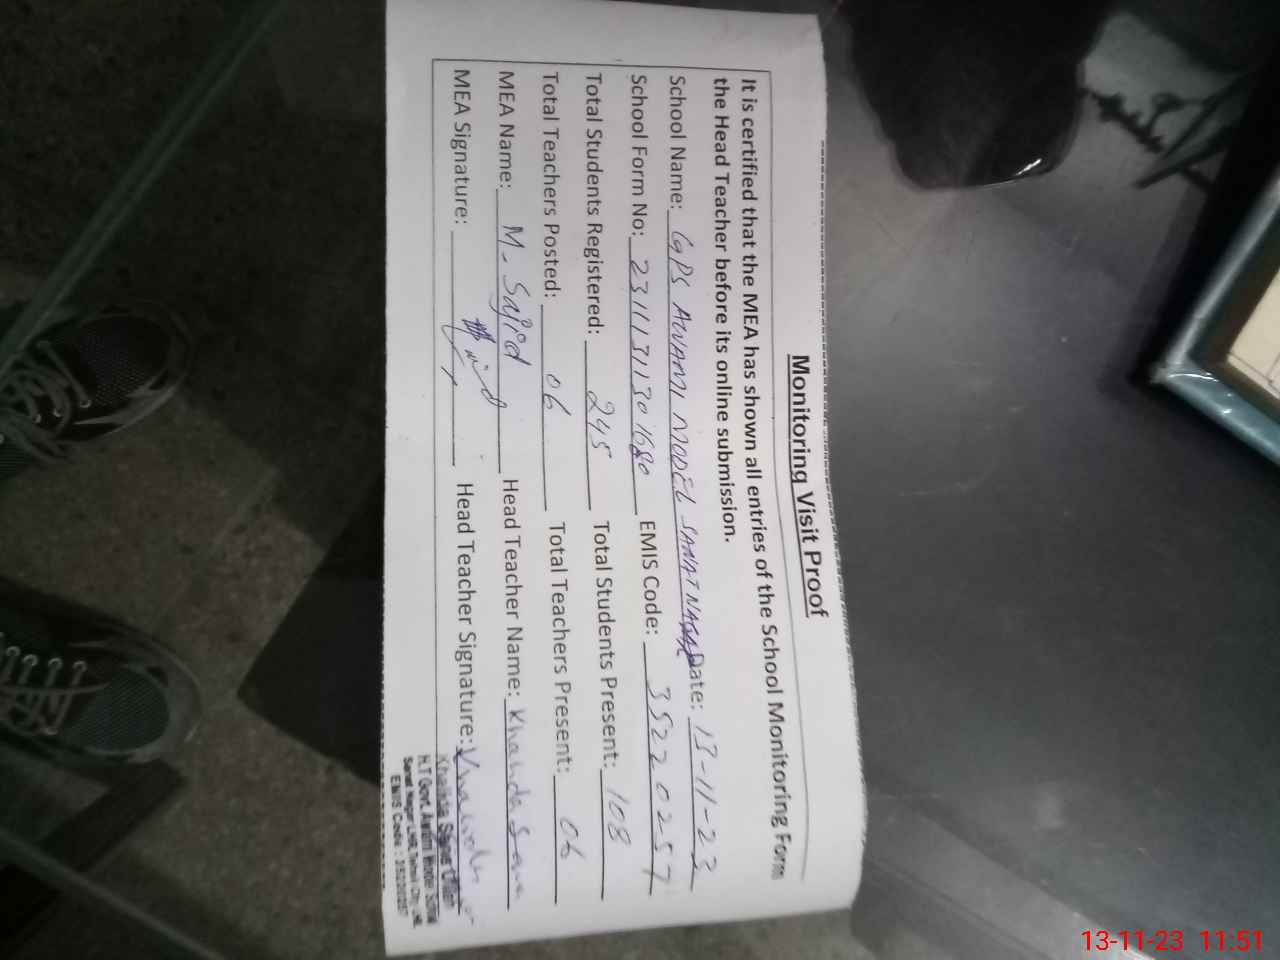 Monitoring Visit Proof
It is certified that the MEA has shown all entries of the School Monitoring Form
the Head Teacher before its online submission.
School Name: GPS AWAMI MODEL SANAT NAGAR Date: 13-11-23
School Form No: EMIS Code: 35220257
Total Students Registered: 245 Total Students Present: 108
Total Teachers Posted: 06 Total Teachers Present: 06
MEA Name: M. Sajid Head Teacher Name: Khalida
MEA Signature: Head Teacher Signature:
Khalida
H.T Govt. Awami Model School
Sanat Nagar
EMIS Code : 35220257
13-11-23 11:51